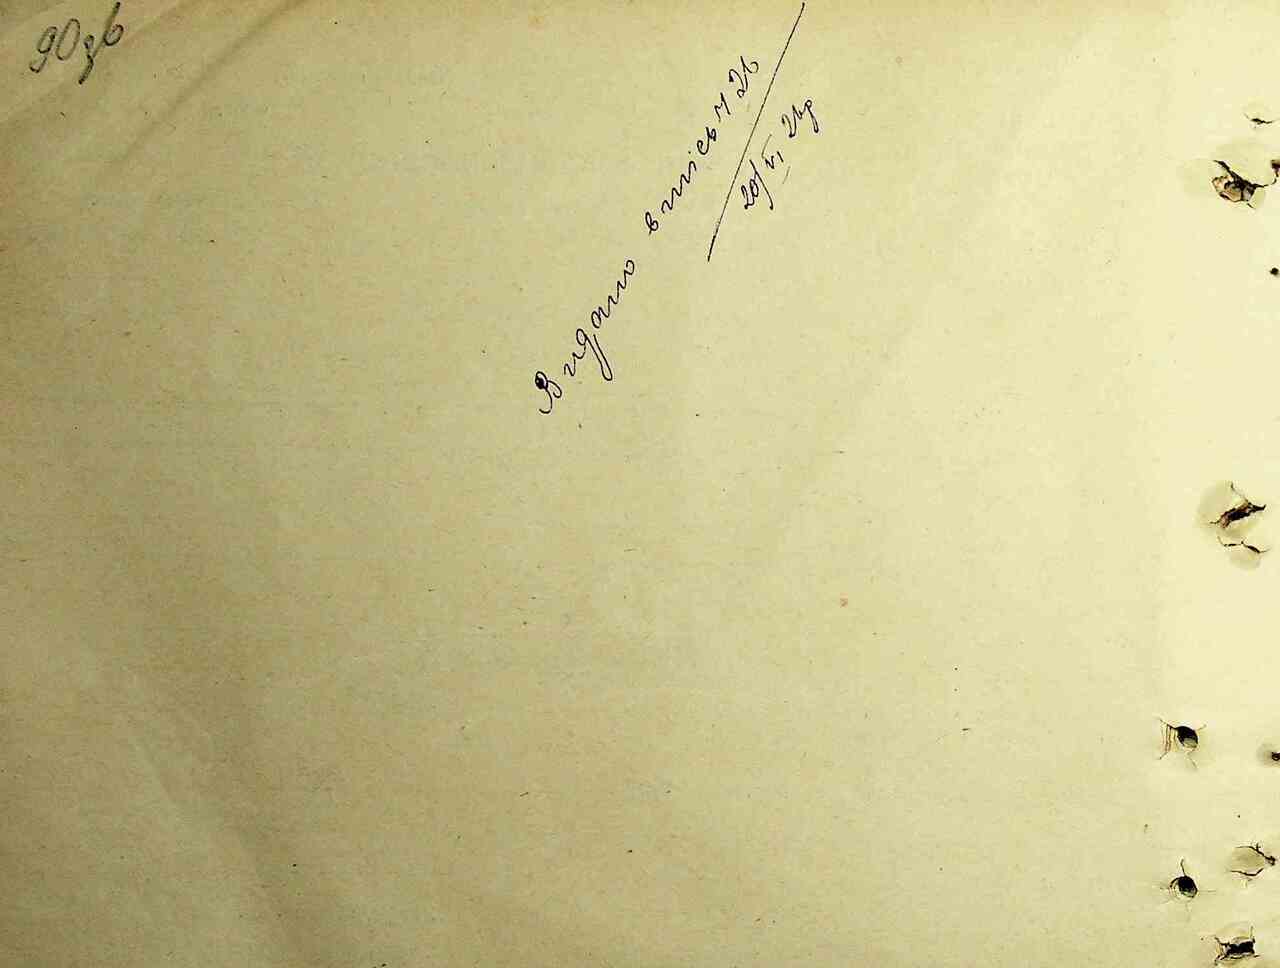 90 зв
Видано виписъ ч 26
20/VI 24р